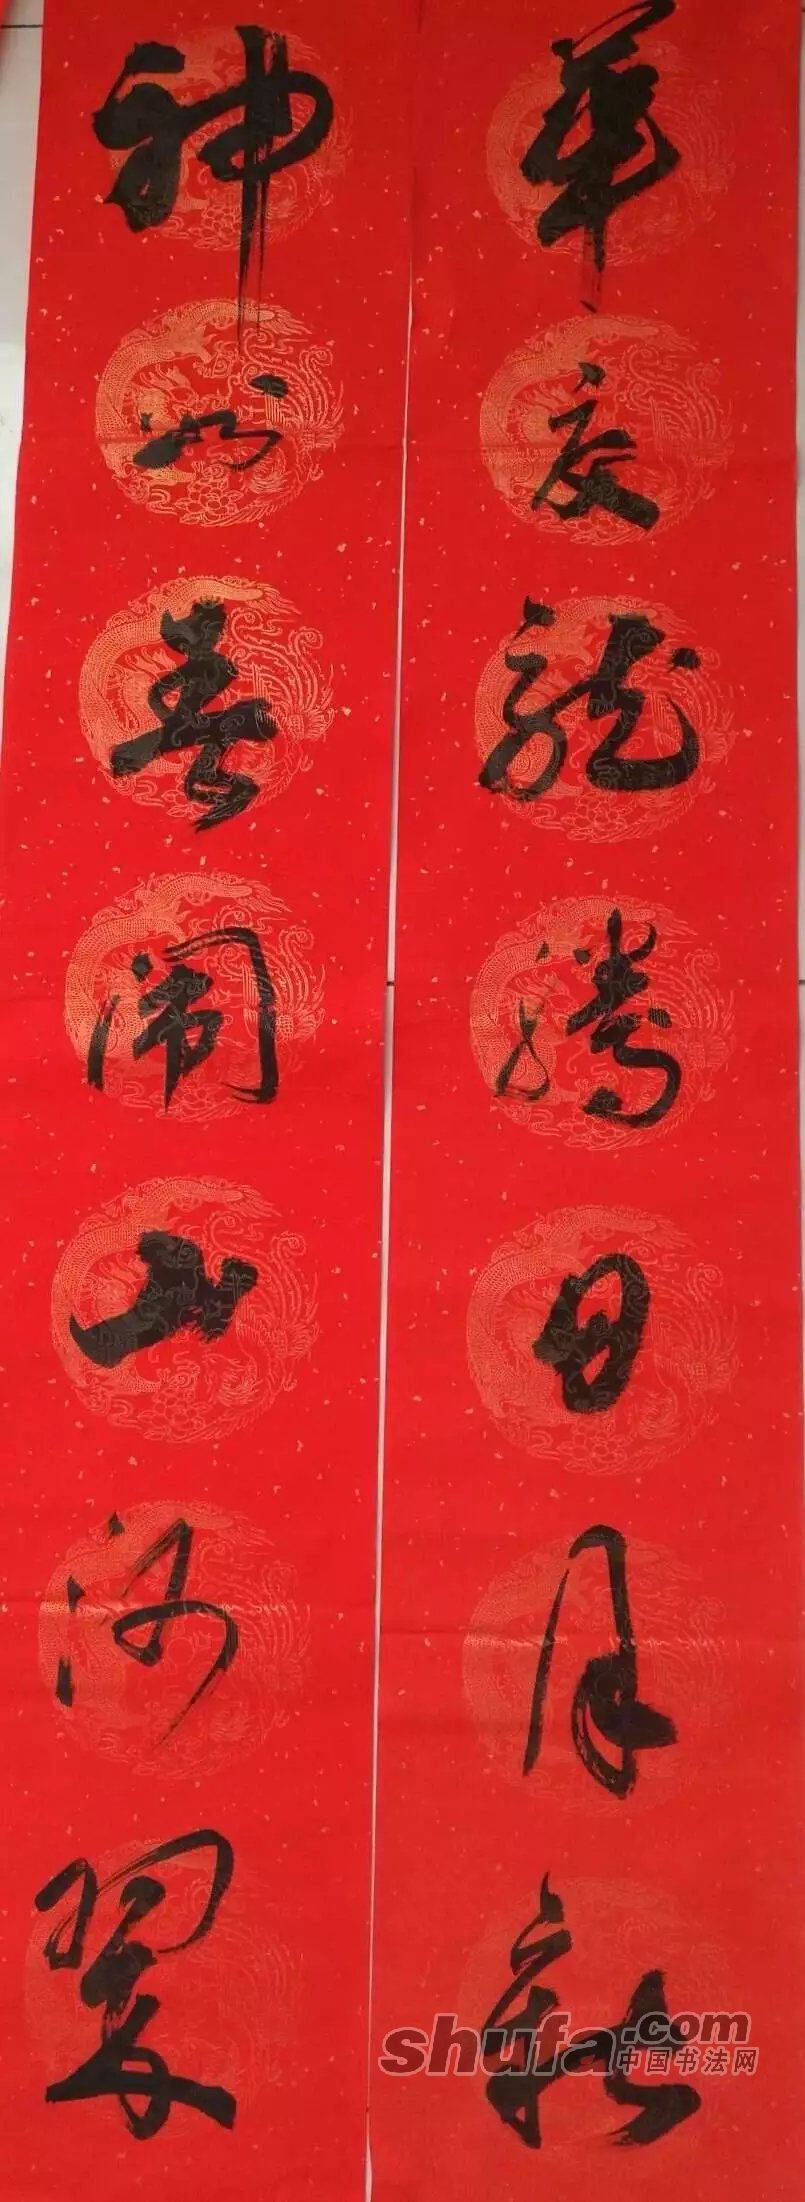 華夏龙腾日月新
神州春闹山河翠
shufa.com
中国书法网